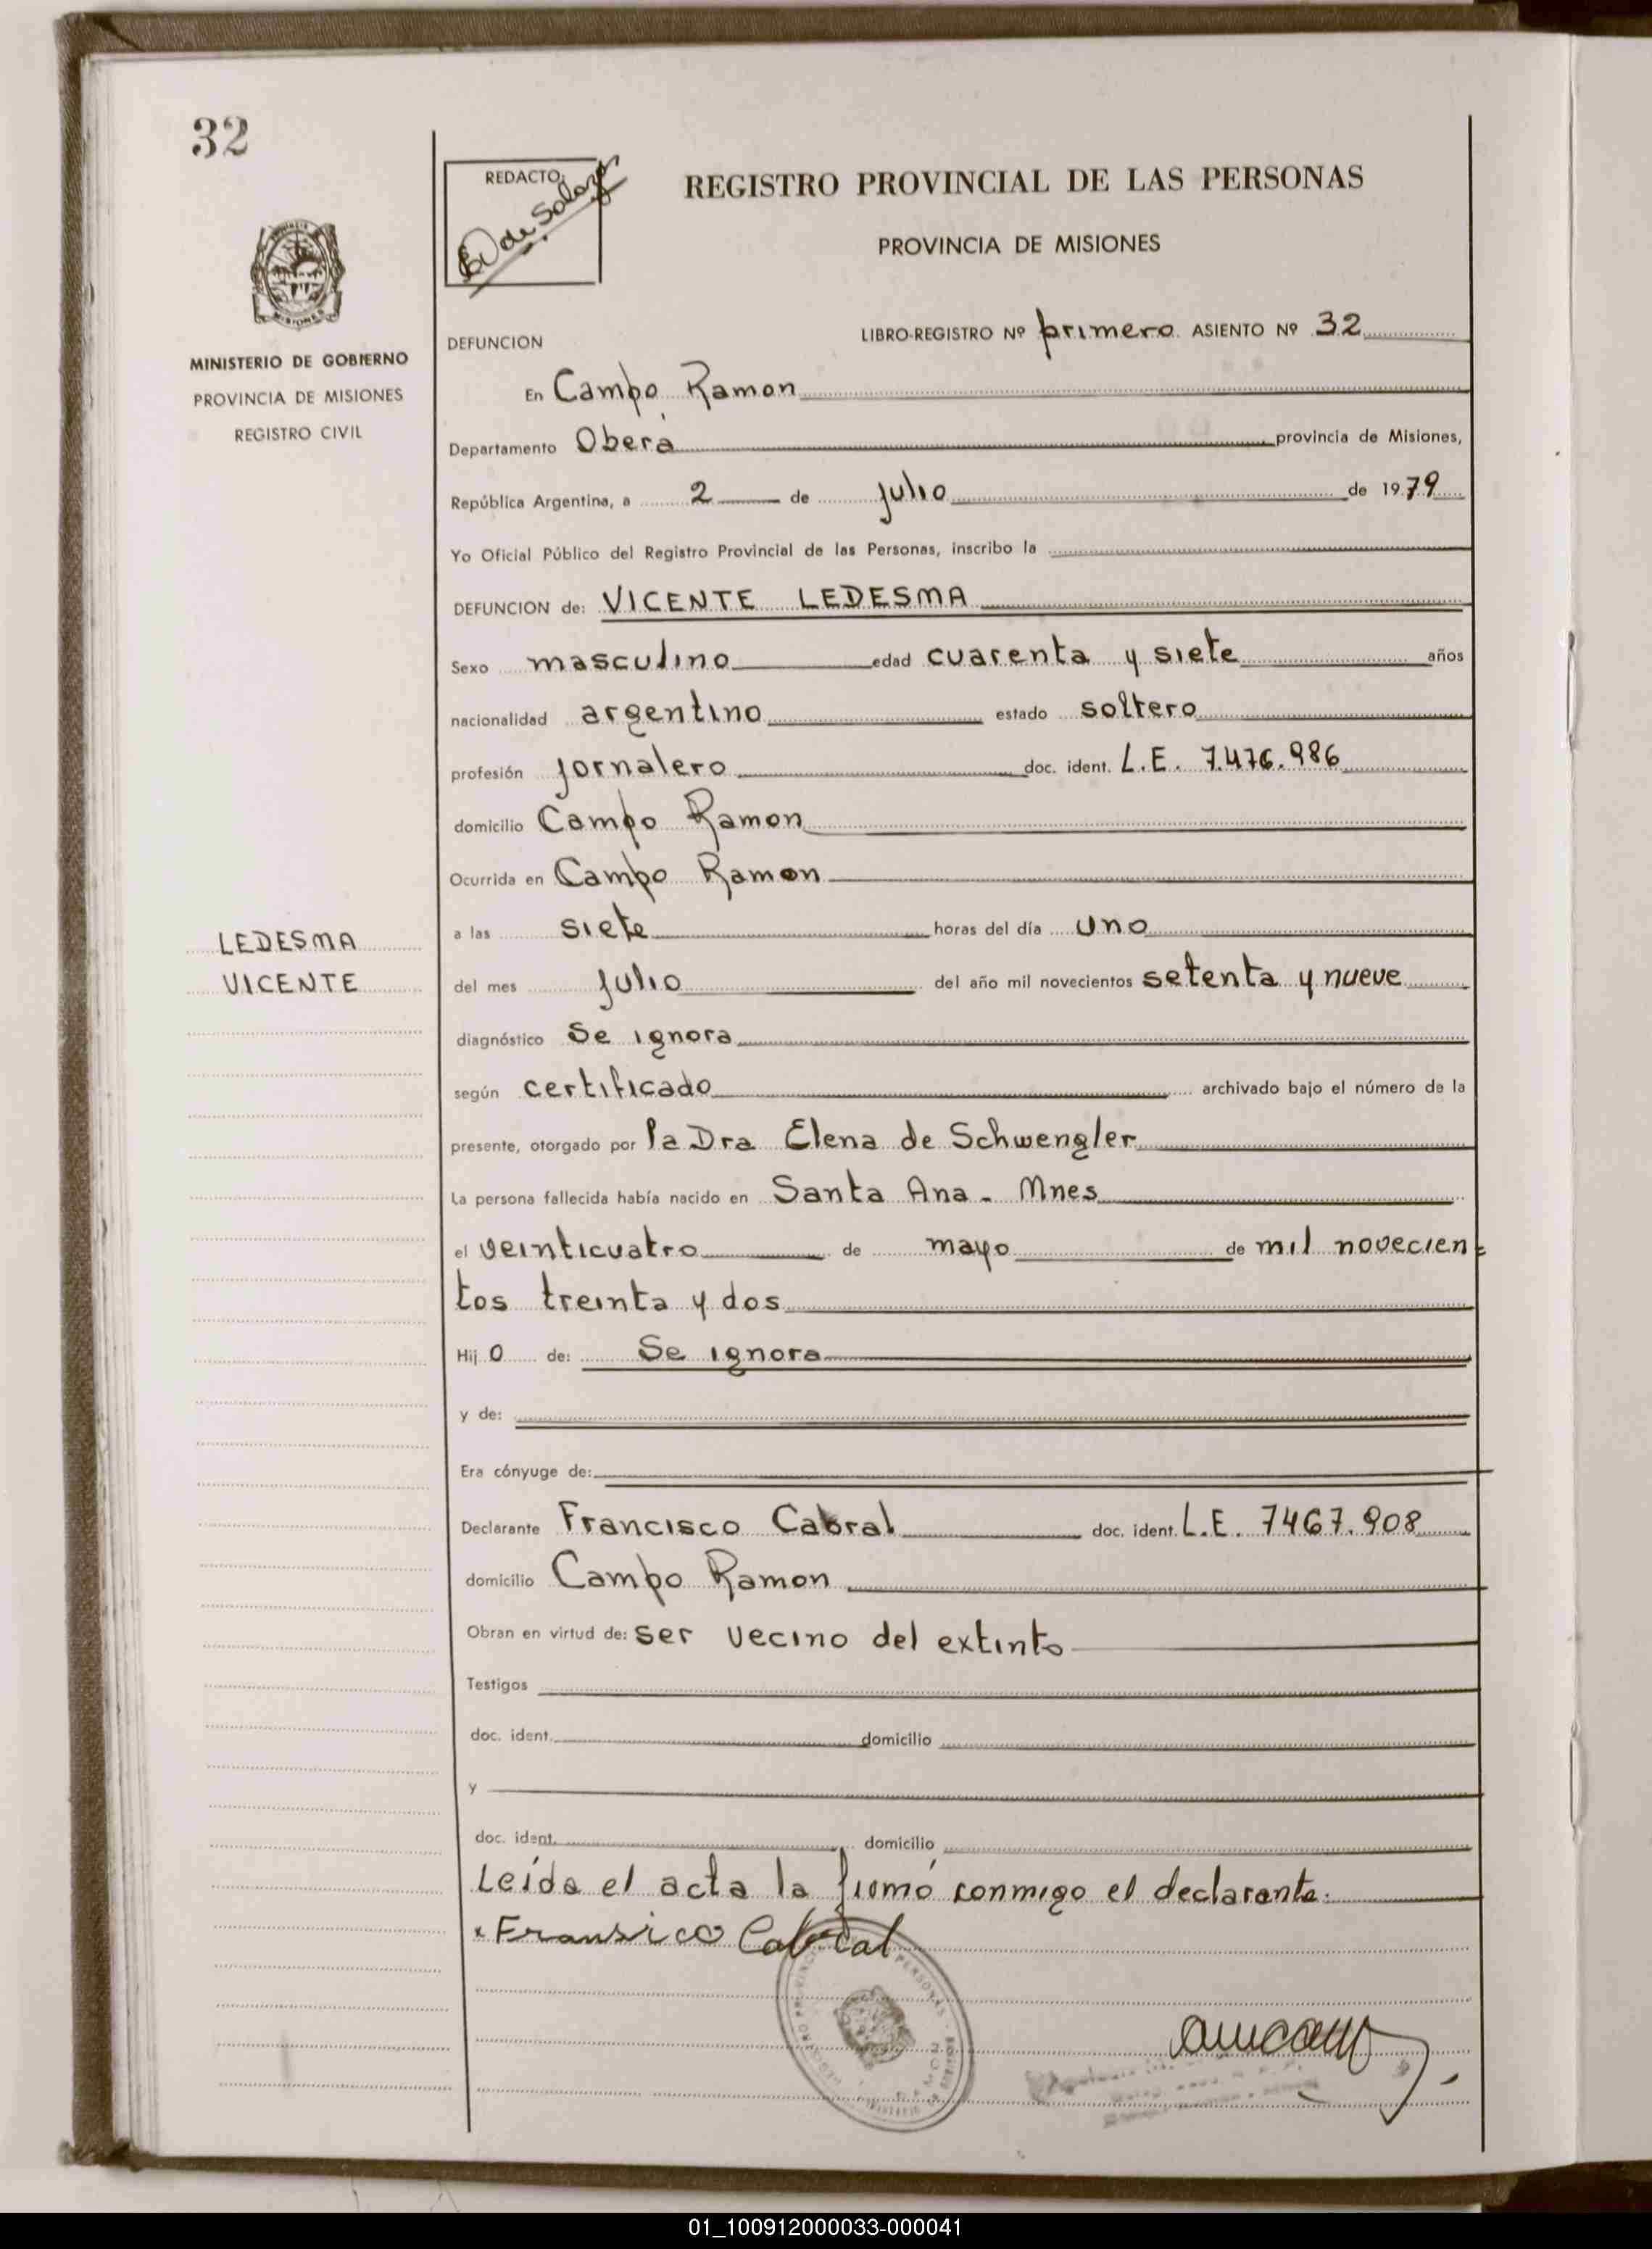 32
MINISTERIO DE GOBIERNO
PROVINCIA DE MISIONES
REGISTRO CIVIL
LEDESMA
VICENTE
REDACTO:
REGISTRO PROVINCIAL DE LAS PERSONAS
PROVINCIA DE MISIONES
DEFUNCION LIBRO-REGISTRO Nº primero ASIENTO Nº 32
En Campo Ramon
Departamento Oberá provincia de Misiones,
República Argentina, a 2 de julio de 1979
Yo Oficial Público del Registro Provincial de las Personas, inscribo la
DEFUNCION de: VICENTE LEDESMA
Sexo masculino edad cuarenta y siete años
nacionalidad argentino estado soltero
profesión jornalero doc. ident. L.E. 7.476.986
domicilio Campo Ramon
Ocurrida en Campo Ramon
a las siete horas del día uno
del mes julio del año mil novecientos setenta y nueve
diagnóstico Se ignora
según certificado archivado bajo el número de la
presente, otorgado por la Dra Elena de Schwengler
La persona fallecida había nacido en Santa Ana - Mnes
el veinticuatro de mayo de mil novecien
tos treinta y dos
Hij o de: Se ignora
y de:
Era cónyuge de:
Declarante Francisco Cabral doc. ident. L.E. 7467.908
domicilio Campo Ramon
Obran en virtud de: ser vecino del extinto
Testigos
doc. ident. domicilio
y
doc. ident. domicilio
Leída el acta la firmó conmigo el declarante.
Fransico Cabral
01_100912000033-000041